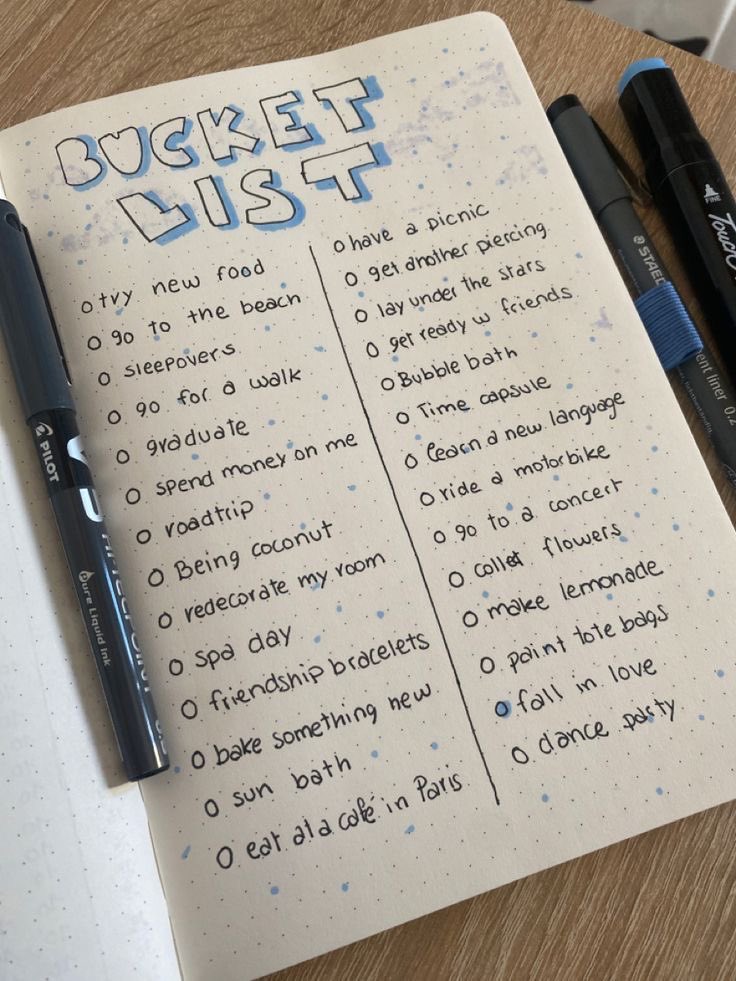 BUCKET
LIST
try new food
go to the beach
sleepovers
go for a walk
graduate
spend money on me
roadtrip
Being coconut
redecorate my room
spa day
friendship bracelets
bake something new
sun bath
eat at a café in Paris
have a picnic
get another piercing
lay under the stars
get ready w friends
Bubble bath
Time capsule
learn a new language
ride a motorbike
go to a concert
collet flowers
make lemonade
paint tote bags
fall in love
dance party
PILOT
Pure Liquid Ink
STAED
ent liner 0.2
FINE
Touch